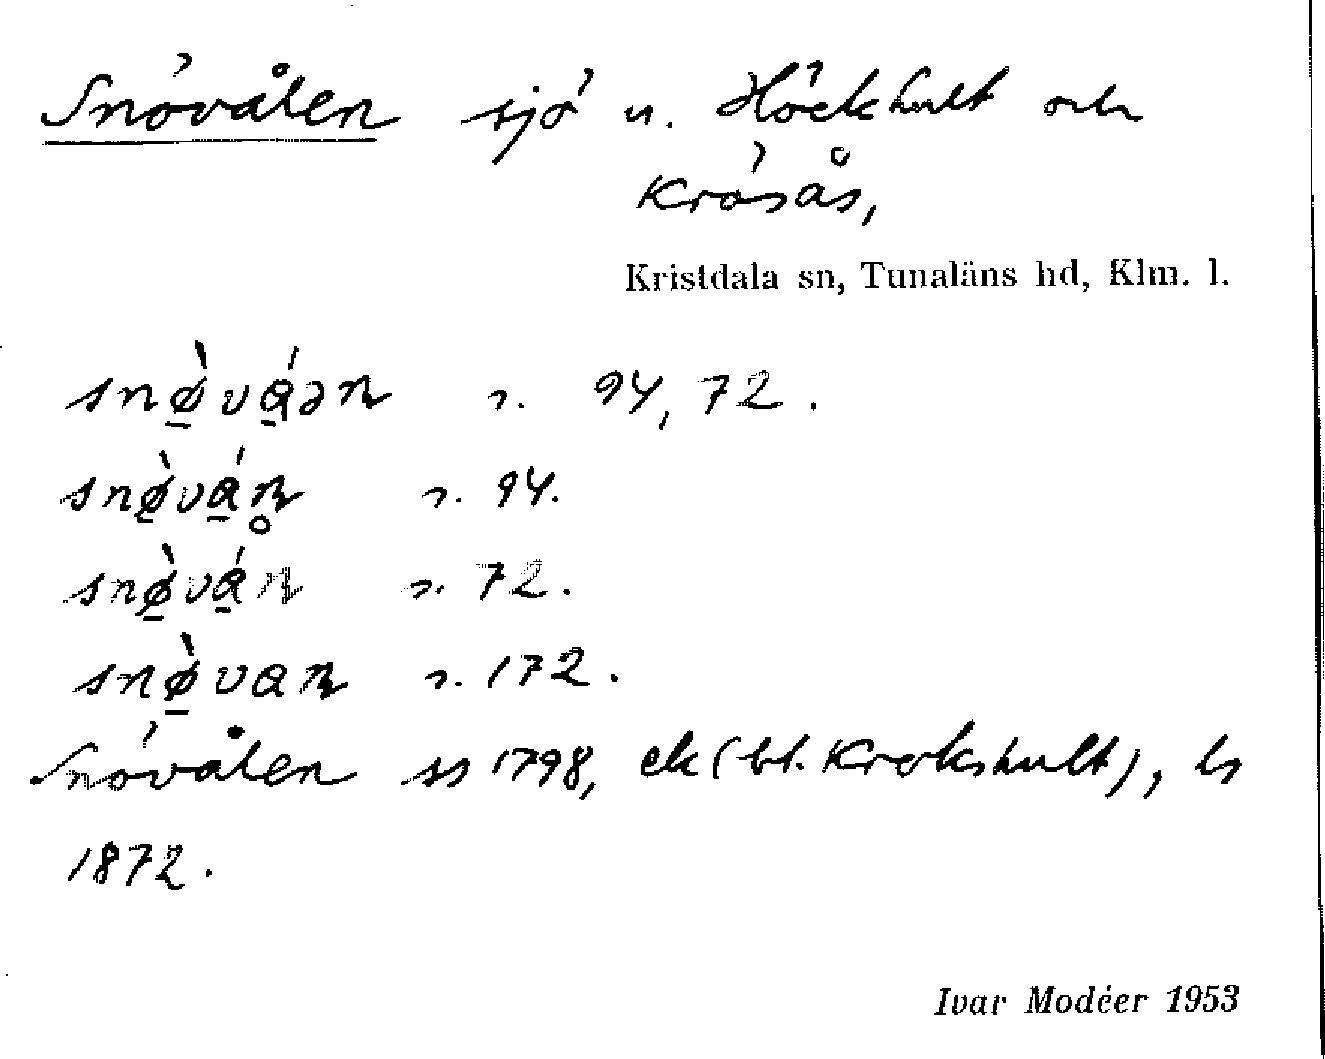 Snövålen sjö n. Höckhult och
Krösås,
Kristdala sn, Tunaläns hd, Klm. l.
snø̀váən s. 94, 72.
snø̀ván̥ s. 94.
snø̀ván s. 72.
snø̀van s. 172.
Snövålen ss 1798, ek (bl. Krokshult), ls
1872.
Ivar Modéer 1953